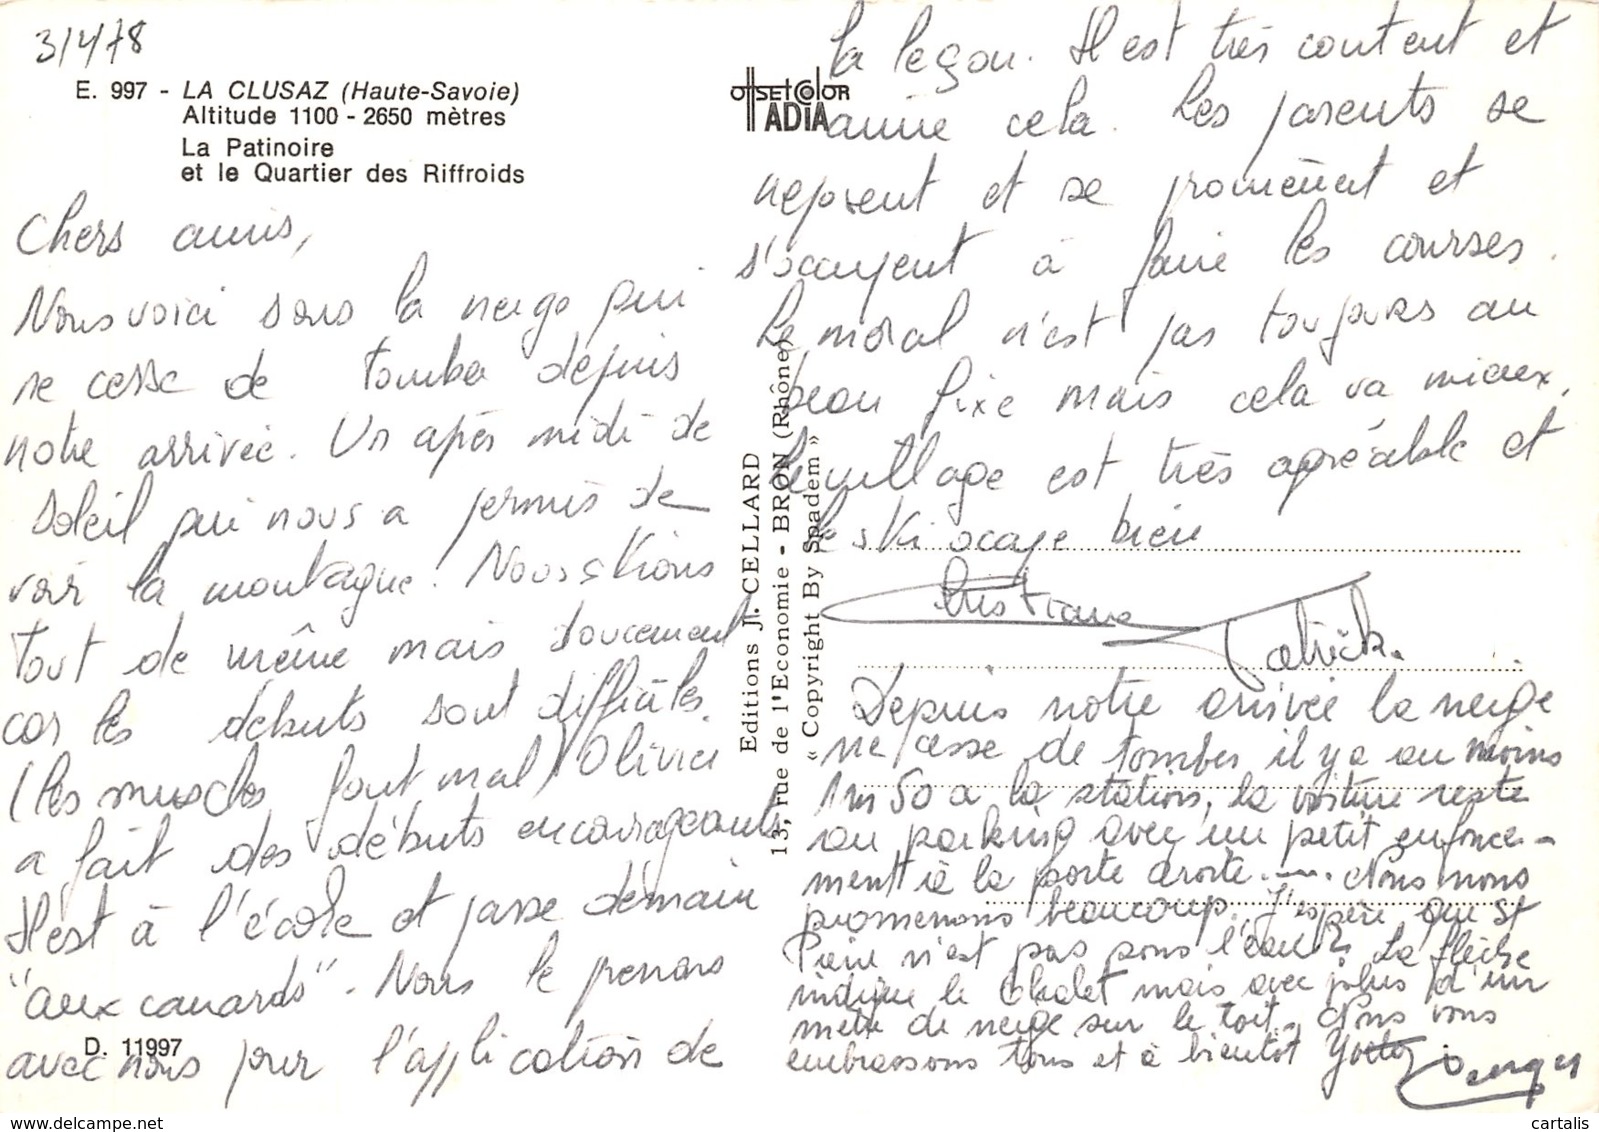 3/4/78
E. 997 - LA CLUSAZ (Haute-Savoie)
Altitude 1100 - 2650 mètres
La Patinoire
et le Quartier des Riffroids
Chers amis,
Nous voici sous la neige qui
ne cesse de tomber depuis
notre arrivée. Un après midi de
soleil qui nous a permis de
voir la montagne. Nous skions
tout de même mais doucement
car les débuts sont difficiles.
(les muscles font mal) Olivier
a fait des débuts encourageants
Il est à l'école et passe demain
"aux canards". Nous le prenons
avec nous pour l'application de
D. 11997
OFFSETCOLOR
ADIA
Editions J. CELLARD
13, rue de l'Economie - BRON (Rhône)
« Copyright By Spadem »
la leçon. Il est très content et
aime cela. Les parents se
reposent et se promènent et
s'occupent à faire les courses.
Le moral n'est pas toujours au
beau fixe mais cela va mieux,
le village est très agréable et
le ski occupe bien
Christiane
Patrick.
Depuis notre arrivée la neige
ne cesse de tomber il y a au moins
1m50 a la station, la voiture reste
au parking avec un petit enfonce-
ment à la porte droite... Nous nous
promenons beaucoup. J'espère que St
Pierre n'est pas sous l'eau? La flèche
indique le chalet mais avec plus d'un
mètre de neige sur le toit. Nous vous
embrassons tous et à bientôt Yvette
Georges
cartalis